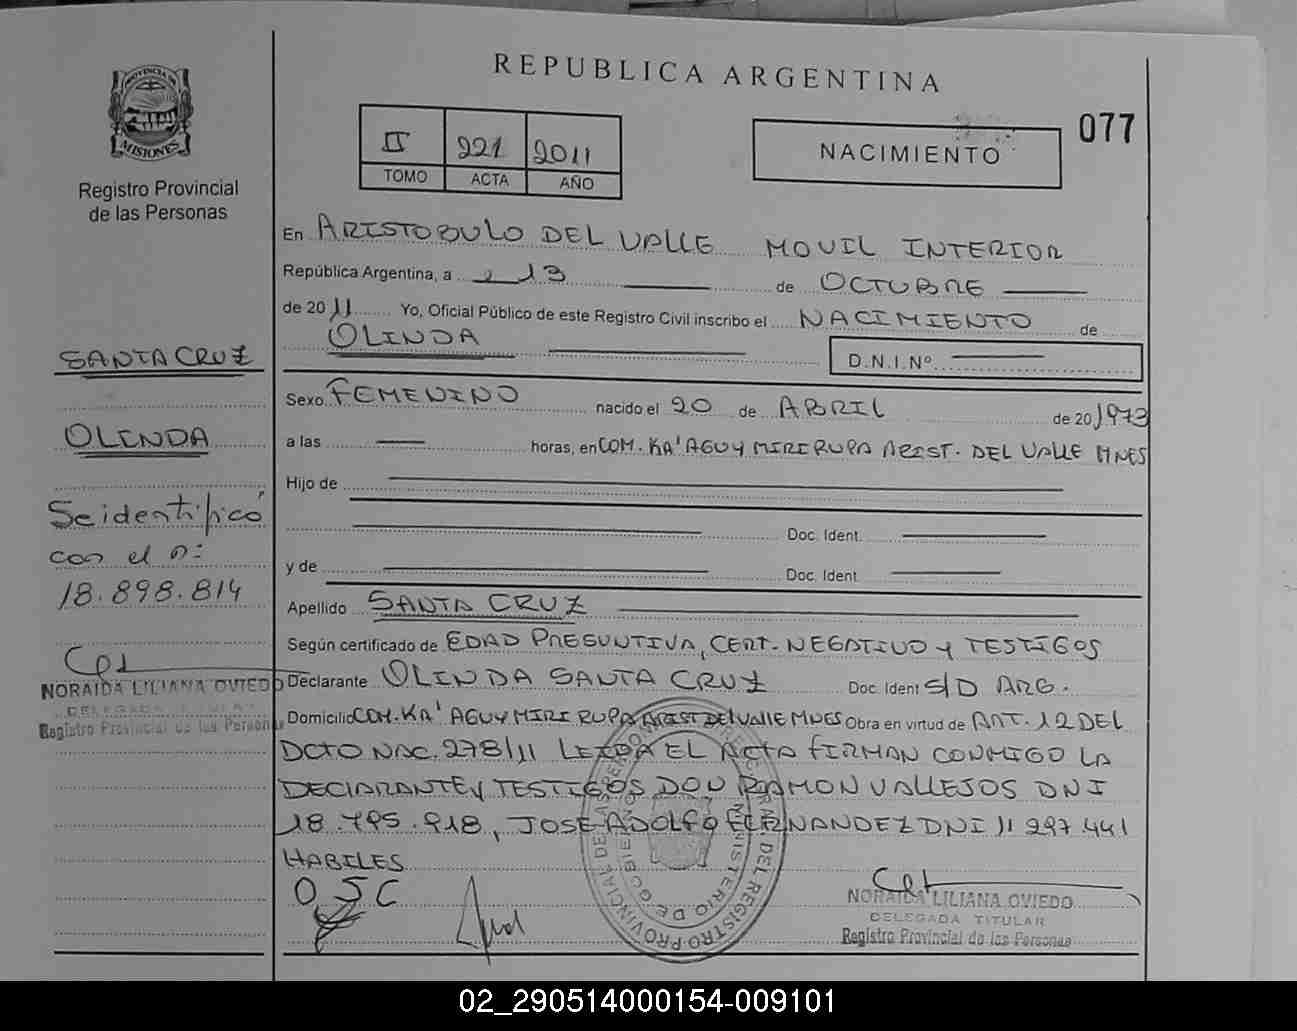 REPUBLICA ARGENTINA
PROVINCIA DE
MISIONES
Registro Provincial
de las Personas
II 221 2011
TOMO ACTA AÑO
NACIMIENTO
077
En ARISTOBULO DEL VALLE MOVIL INTERIOR
República Argentina, a 13 de OCTUBRE
de 2011 Yo, Oficial Público de este Registro Civil inscribo el NACIMIENTO de
OLINDA
D.N.I.Nº
Sexo FEMENINO nacido el 20 de ABRIL de 20 1973
a las horas, en COM. KA'AGUY MIRI RUPA ARIST. DEL VALLE MNES
Hijo de
Doc. Ident.
y de
Doc. Ident
Apellido SANTA CRUZ
Según certificado de EDAD PRESUNTIVA, CERT. NEGATIVO Y TESTIGOS
Declarante OLINDA SANTA CRUZ Doc. Ident S/D ARG.
Domicilio COM. KA'AGUY MIRI RUPA ARIST DEL VALLE MNES Obra en virtud de ART. 12 DEL
DCTO NAC. 278/11 LEIDA EL ACTA FIRMAN CONMIGO LA
DECLARANTE Y TESTIGOS DON RAMON VALLEJOS DNI
18.795.918, JOSE ADOLFO FERNANDEZ DNI 11 297.441
HABILES
O SC
NORAIDA LILIANA OVIEDO
DELEGADA TITULAR
Registro Provincial de las Personas
SANTA CRUZ
OLINDA
Se identificó
con el n:
18.898.814
NORAIDA LILIANA OVIEDO
DELEGADA TITULAR
Registro Provincial de las Personas
02_290514000154-009101